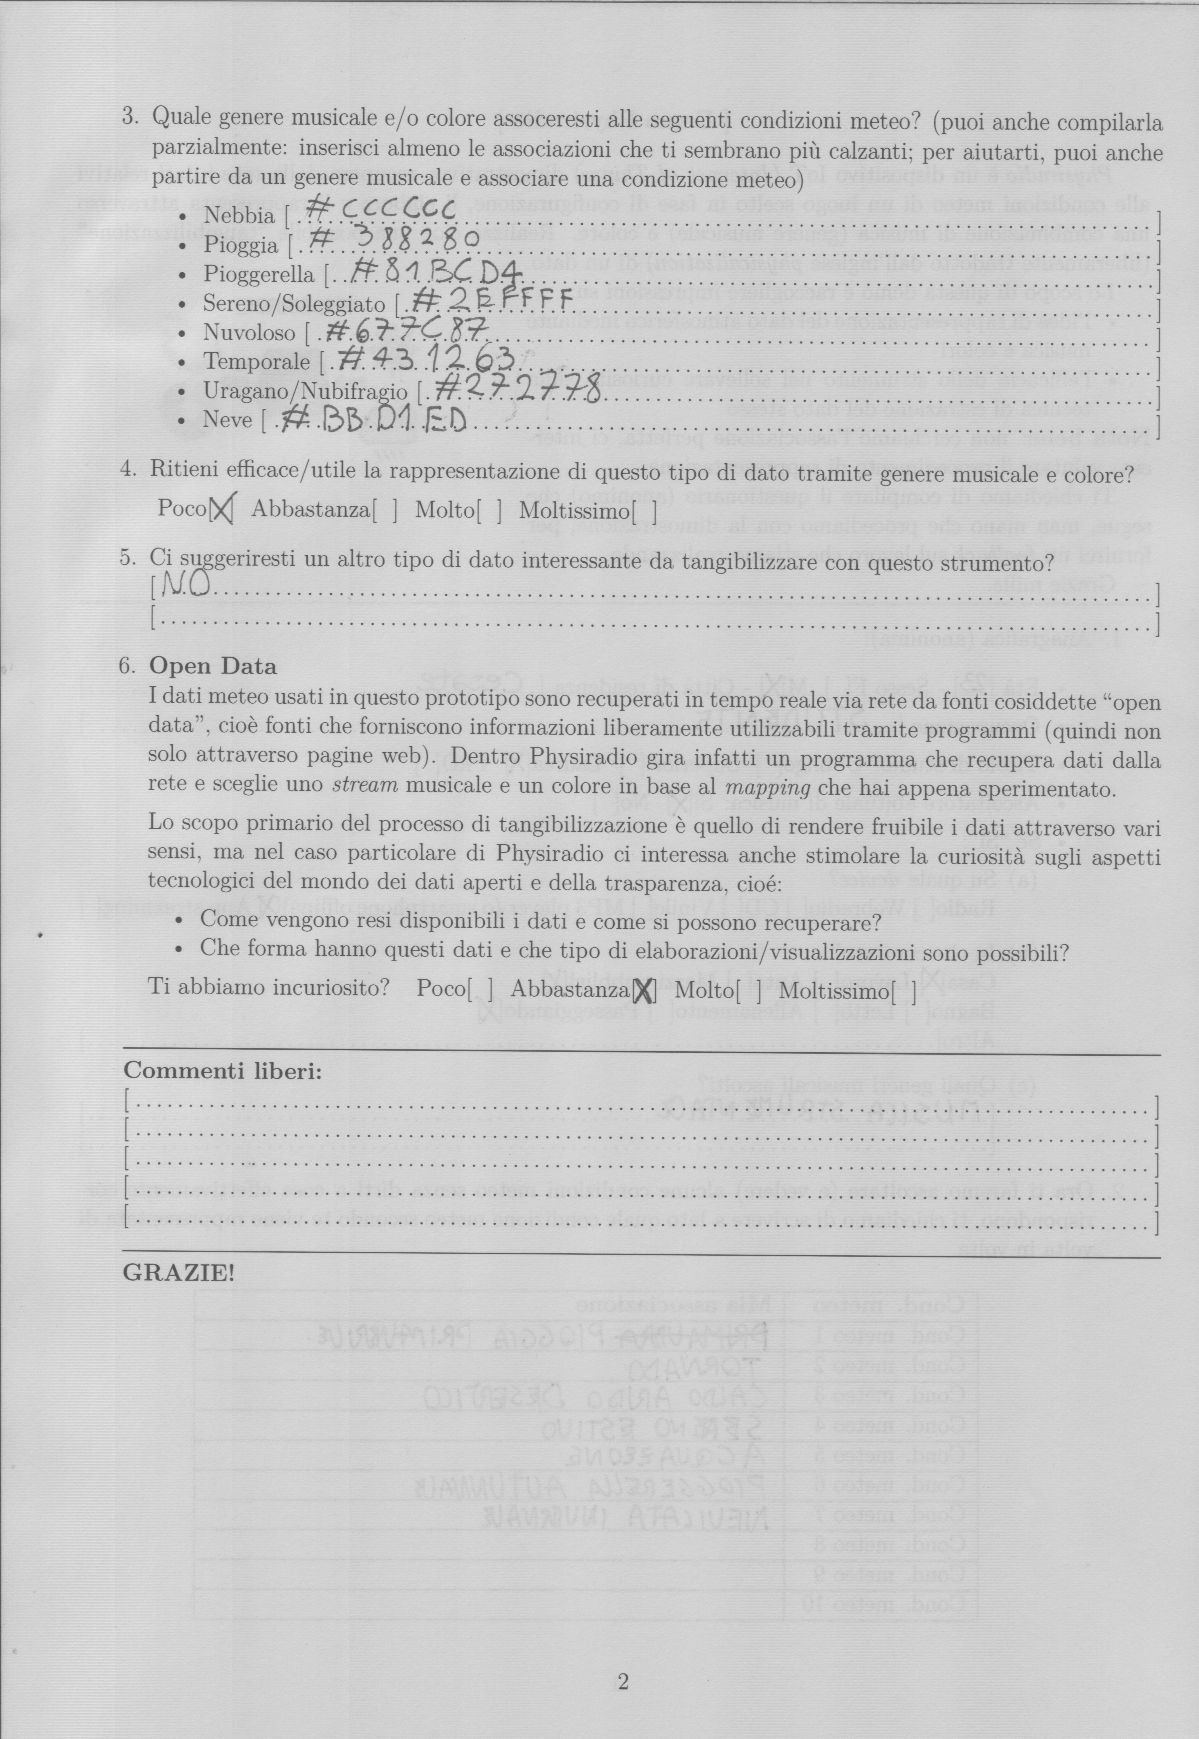 3. Quale genere musicale e/o colore assoceresti alle seguenti condizioni meteo? (puoi anche compilarla
parzialmente: inserisci almeno le associazioni che ti sembrano più calzanti; per aiutarti, puoi anche
partire da un genere musicale e associare una condizione meteo)
• Nebbia [ #CCCCCC ]
• Pioggia [ # 388280 ]
• Pioggerella [ #81BCD4 ]
• Sereno/Soleggiato [ #2EFFFF ]
• Nuvoloso [ #677C87 ]
• Temporale [ #431263 ]
• Uragano/Nubifragio [ #272778 ]
• Neve [ #BBD1ED ]
4. Ritieni efficace/utile la rappresentazione di questo tipo di dato tramite genere musicale e colore?
Poco[X] Abbastanza[ ] Molto[ ] Moltissimo[ ]
5. Ci suggeriresti un altro tipo di dato interessante da tangibilizzare con questo strumento?
[NO ]
[ ]
6. Open Data
I dati meteo usati in questo prototipo sono recuperati in tempo reale via rete da fonti cosiddette “open
data”, cioè fonti che forniscono informazioni liberamente utilizzabili tramite programmi (quindi non
solo attraverso pagine web). Dentro Physiradio gira infatti un programma che recupera dati dalla
rete e sceglie uno stream musicale e un colore in base al mapping che hai appena sperimentato.
Lo scopo primario del processo di tangibilizzazione è quello di rendere fruibile i dati attraverso vari
sensi, ma nel caso particolare di Physiradio ci interessa anche stimolare la curiosità sugli aspetti
tecnologici del mondo dei dati aperti e della trasparenza, cioé:
• Come vengono resi disponibili i dati e come si possono recuperare?
• Che forma hanno questi dati e che tipo di elaborazioni/visualizzazioni sono possibili?
Ti abbiamo incuriosito? Poco[ ] Abbastanza[X] Molto[ ] Moltissimo[ ]
Commenti liberi:
[ ]
[ ]
[ ]
[ ]
[ ]
GRAZIE!
2